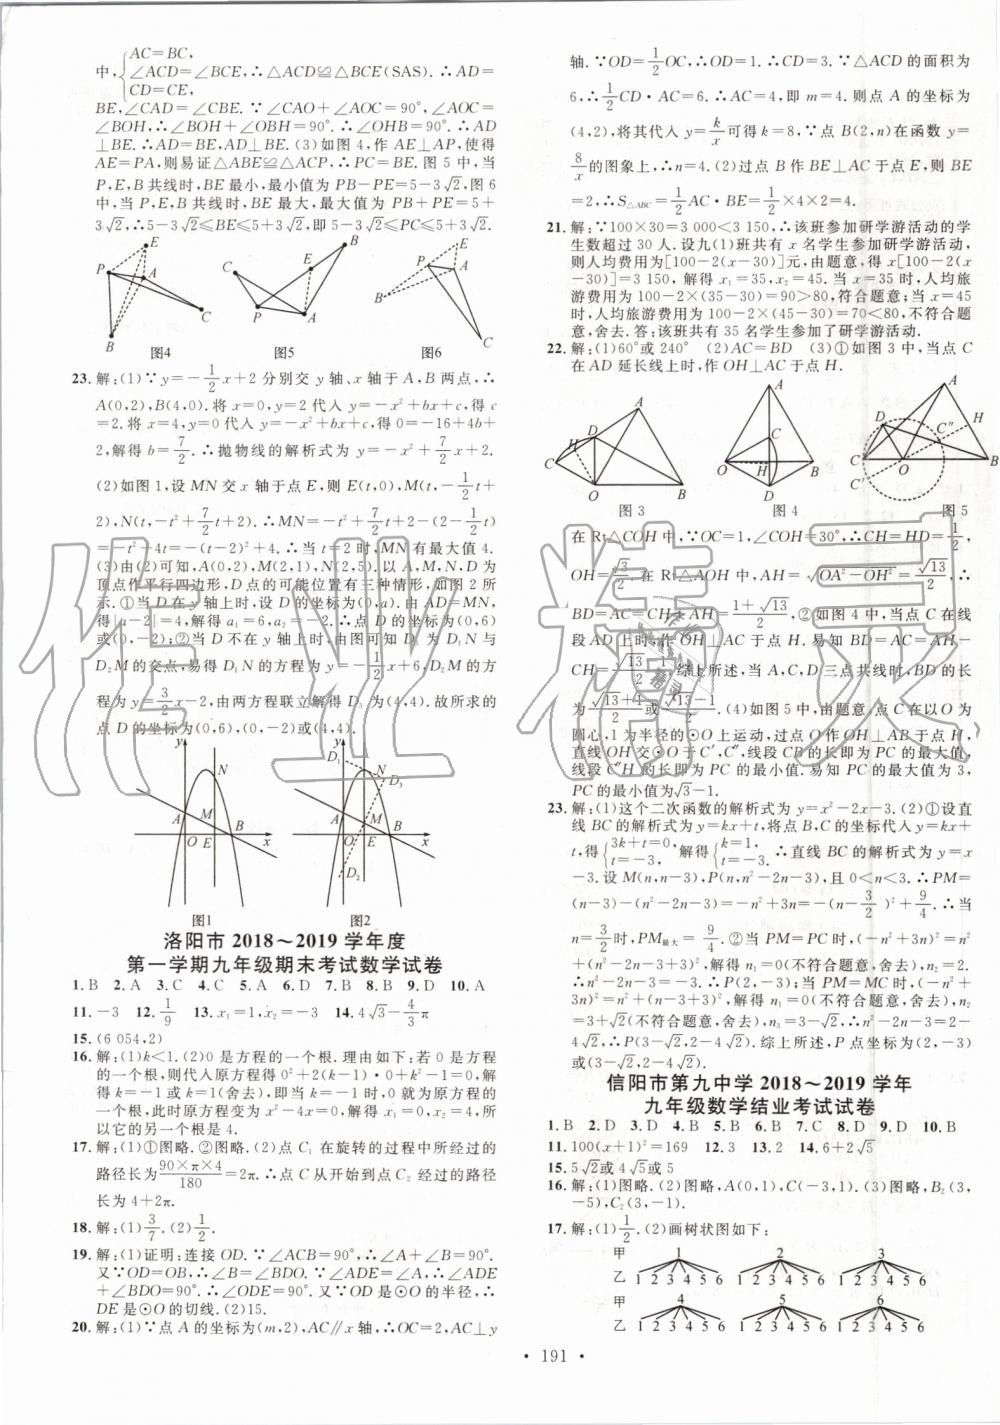 中,{AC=BC,
∠ACD=∠BCE,∴△ACD≌△BCE(SAS).∴AD=
CD=CE,
BE,∠CAD=∠CBE.∵∠CAO+∠AOC=90°,∠AOC=
∠BOH,∴∠BOH+∠OBH=90°.∴∠OHB=90°.∴AD
⊥BE.∴AD=BE,AD⊥BE.(3)如图4,作AE⊥AP,使得
AE=PA,则易证△ABE≌△ACP,∴PC=BE.图5中,当
P,E,B共线时,BE最小,最小值为PB-PE=5-3√2,图6
中,当P,E,B共线时,BE最大,最大值为PB+PE=5+
3√2,∴5-3√2≤BE≤5+3√2,即5-3√2≤PC≤5+3√2.
E P A C B
图4
B E C P A
图5
E P A B C
图6
23.解:(1)∵y=-1/2x+2分别交y轴、x轴于A,B两点,∴
A(0,2),B(4,0).将x=0,y=2代入y=-x²+bx+c,得c
=2.将x=4,y=0代入y=-x²+bx+c,得0=-16+4b+
2,解得b=7/2.∴抛物线的解析式为y=-x²+7/2x+2.
(2)如图1,设MN交x轴于点E,则E(t,0),M(t,-1/2t+
2),N(t,-t²+7/2t+2).∴MN=-t²+7/2t+2-(2-1/2t)
=-t²+4t=-(t-2)²+4.∴当t=2时,MN有最大值4.
(3)由(2)可知,A(0,2),M(2,1),N(2,5).以A,M,N,D为
顶点作平行四边形,D点的可能位置有三种情形,如图2所
示.①当D在y轴上时,设D的坐标为(0,a).由AD=MN,
得|a-2|=4,解得a₁=6,a₂=-2.∴点D的坐标为(0,6)
或(0,-2);②当D不在y轴上时,由图可知D₃为D₁N与
D₂M的交点,易得D₁N的方程为y=-1/2x+6,D₂M的方
程为y=3/2x-2,由两方程联立解得D₃为(4,4).故所求的
点D的坐标为(0,6),(0,-2)或(4,4).
y N A M B O E x
图1
y D₁ N D₃ A M O B x D₂
图2
洛阳市2018～2019学年度
第一学期九年级期末考试数学试卷
1.B 2.A 3.C 4.C 5.A 6.D 7.B 8.B 9.D 10.A
11.-3 12.1/9 13.x₁=1,x₂=-3 14.4√3-4/3π
15.(6 054,2)
16.解:(1)k<1.(2)0是方程的一个根.理由如下:若0是方程
的一个根,则代入原方程得0²+2(k-1)·0+k²-1=0,解得
k=-1或k=1(舍去),即当k=-1时,0就为原方程的
一个根,此时原方程变为x²-4x=0,解得x₁=0,x₂=4,所
以它的另一个根是4.
17.解:(1)①图略.②图略.(2)点C₁在旋转的过程中所经过的
路径长为90×π×4/180=2π.∴点C从开始到点C₂经过的路径
长为4+2π.
18.解:(1)3/7.(2)1/2.
19.解:(1)证明:连接OD.∵∠ACB=90°,∴∠A+∠B=90°.
又∵OD=OB,∴∠B=∠BDO.∵∠ADE=∠A,∴∠ADE
+∠BDO=90°.∴∠ODE=90°.又∵OD是⊙O的半径,∴
DE是⊙O的切线.(2)15.
20.解:(1)∵点A的坐标为(m,2),AC∥x轴,∴OC=2,AC⊥y
轴.∵OD=1/2OC,∴OD=1.∴CD=3.∵△ACD的面积为
6,∴1/2CD·AC=6.∴AC=4,即m=4.则点A的坐标为
(4,2),将其代入y=k/x可得k=8,∵点B(2,n)在函数y=
8/x的图象上,∴n=4.(2)过点B作BE⊥AC于点E,则BE
=2,∴S△ABC=1/2AC·BE=1/2×4×2=4.
21.解:∵100×30=3 000<3 150,∴该班参加研学游活动的学
生数超过30人.设九(1)班共有x名学生参加研学游活动,
则人均费用为[100-2(x-30)]元,由题意,得x[100-2(x
-30)]=3 150,解得x₁=35,x₂=45.当x=35时,人均旅
游费用为100-2×(35-30)=90>80,符合题意;当x=45
时,人均旅游费用为100-2×(45-30)=70<80,不符合题
意,舍去.答:该班共有35名学生参加了研学游活动.
22.解:(1)60°或240° (2)AC=BD (3)①如图3中,当点C
在AD延长线上时,作OH⊥AC于点H.
A D H C O B
图3
A C O H B D
图4
A D C″ H C O B C′
图5
在Rt△COH中,∵OC=1,∠COH=30°,∴CH=HD=1/2,
OH=√3/2.在Rt△AOH中,AH=√(OA²-OH²)=√13/2,∴
BD=AC=CH+AH=(1+√13)/2;②如图4中,当点C在线
段AD上时,作OH⊥AC于点H.易知BD=AC=AH-
CH=√13/2-1/2.综上所述,当A,C,D三点共线时,BD的长
为(√13+1)/2或(√13-1)/2.(4)如图5中,由题意,点C在以O为
圆心,1为半径的⊙O上运动,过点O作OH⊥AB于点H,
直线OH交⊙O于C′,C″,线段CB的长即为PC的最大值,
线段C″H的长即为PC的最小值.易知PC的最大值为3,
PC的最小值为√3-1.
23.解:(1)这个二次函数的解析式为y=x²-2x-3.(2)①设直
线BC的解析式为y=kx+t,将点B,C的坐标代入y=kx+
t,得{3k+t=0, t=-3, 解得{k=1, t=-3,∴直线BC的解析式为y=x
-3.设M(n,n-3),P(n,n²-2n-3),且0<n<3.∴PM=
(n-3)-(n²-2n-3)=-n²+3n=-(n-3/2)²+9/4.∴当
n=3/2时,PM最大=9/4.②当PM=PC时,(-n²+3n)²=
n²+(n²-2n-3+3)²,解得n₁=0(不符合题意,舍去),n₂=2.
∴n²-2n-3=-3.∴P(2,-3);当PM=MC时,(-n²+
3n)²=n²+(n-3+3)²,解得n₁=0(不符合题意,舍去),n₂
=3+√2(不符合题意,舍去),n₃=3-√2.∴n²-2n-3=2-
4√2.∴P(3-√2,2-4√2).综上所述,点P的坐标为(2,-3)
或(3-√2,2-4√2).
信阳市第九中学2018～2019学年
九年级数学结业考试试卷
1.B 2.D 3.D 4.B 5.B 6.B 7.C 8.D 9.D 10.B
11.100(x+1)²=169 12.3 13.2 14.6+2√5
15.5√2或4√5或5
16.解:(1)图略.(2)图略,A(0,1),C(-3,1).(3)图略,B₂(3,
-5),C₂(3,-1).
17.解:(1)1/2.(2)画树状图如下:
甲 1 2 3
乙 1 2 3 4 5 6 1 2 3 4 5 6 1 2 3 4 5 6
甲 4 5 6
乙 1 2 3 4 5 6 1 2 3 4 5 6 1 2 3 4 5 6
· 191 ·
作业精灵